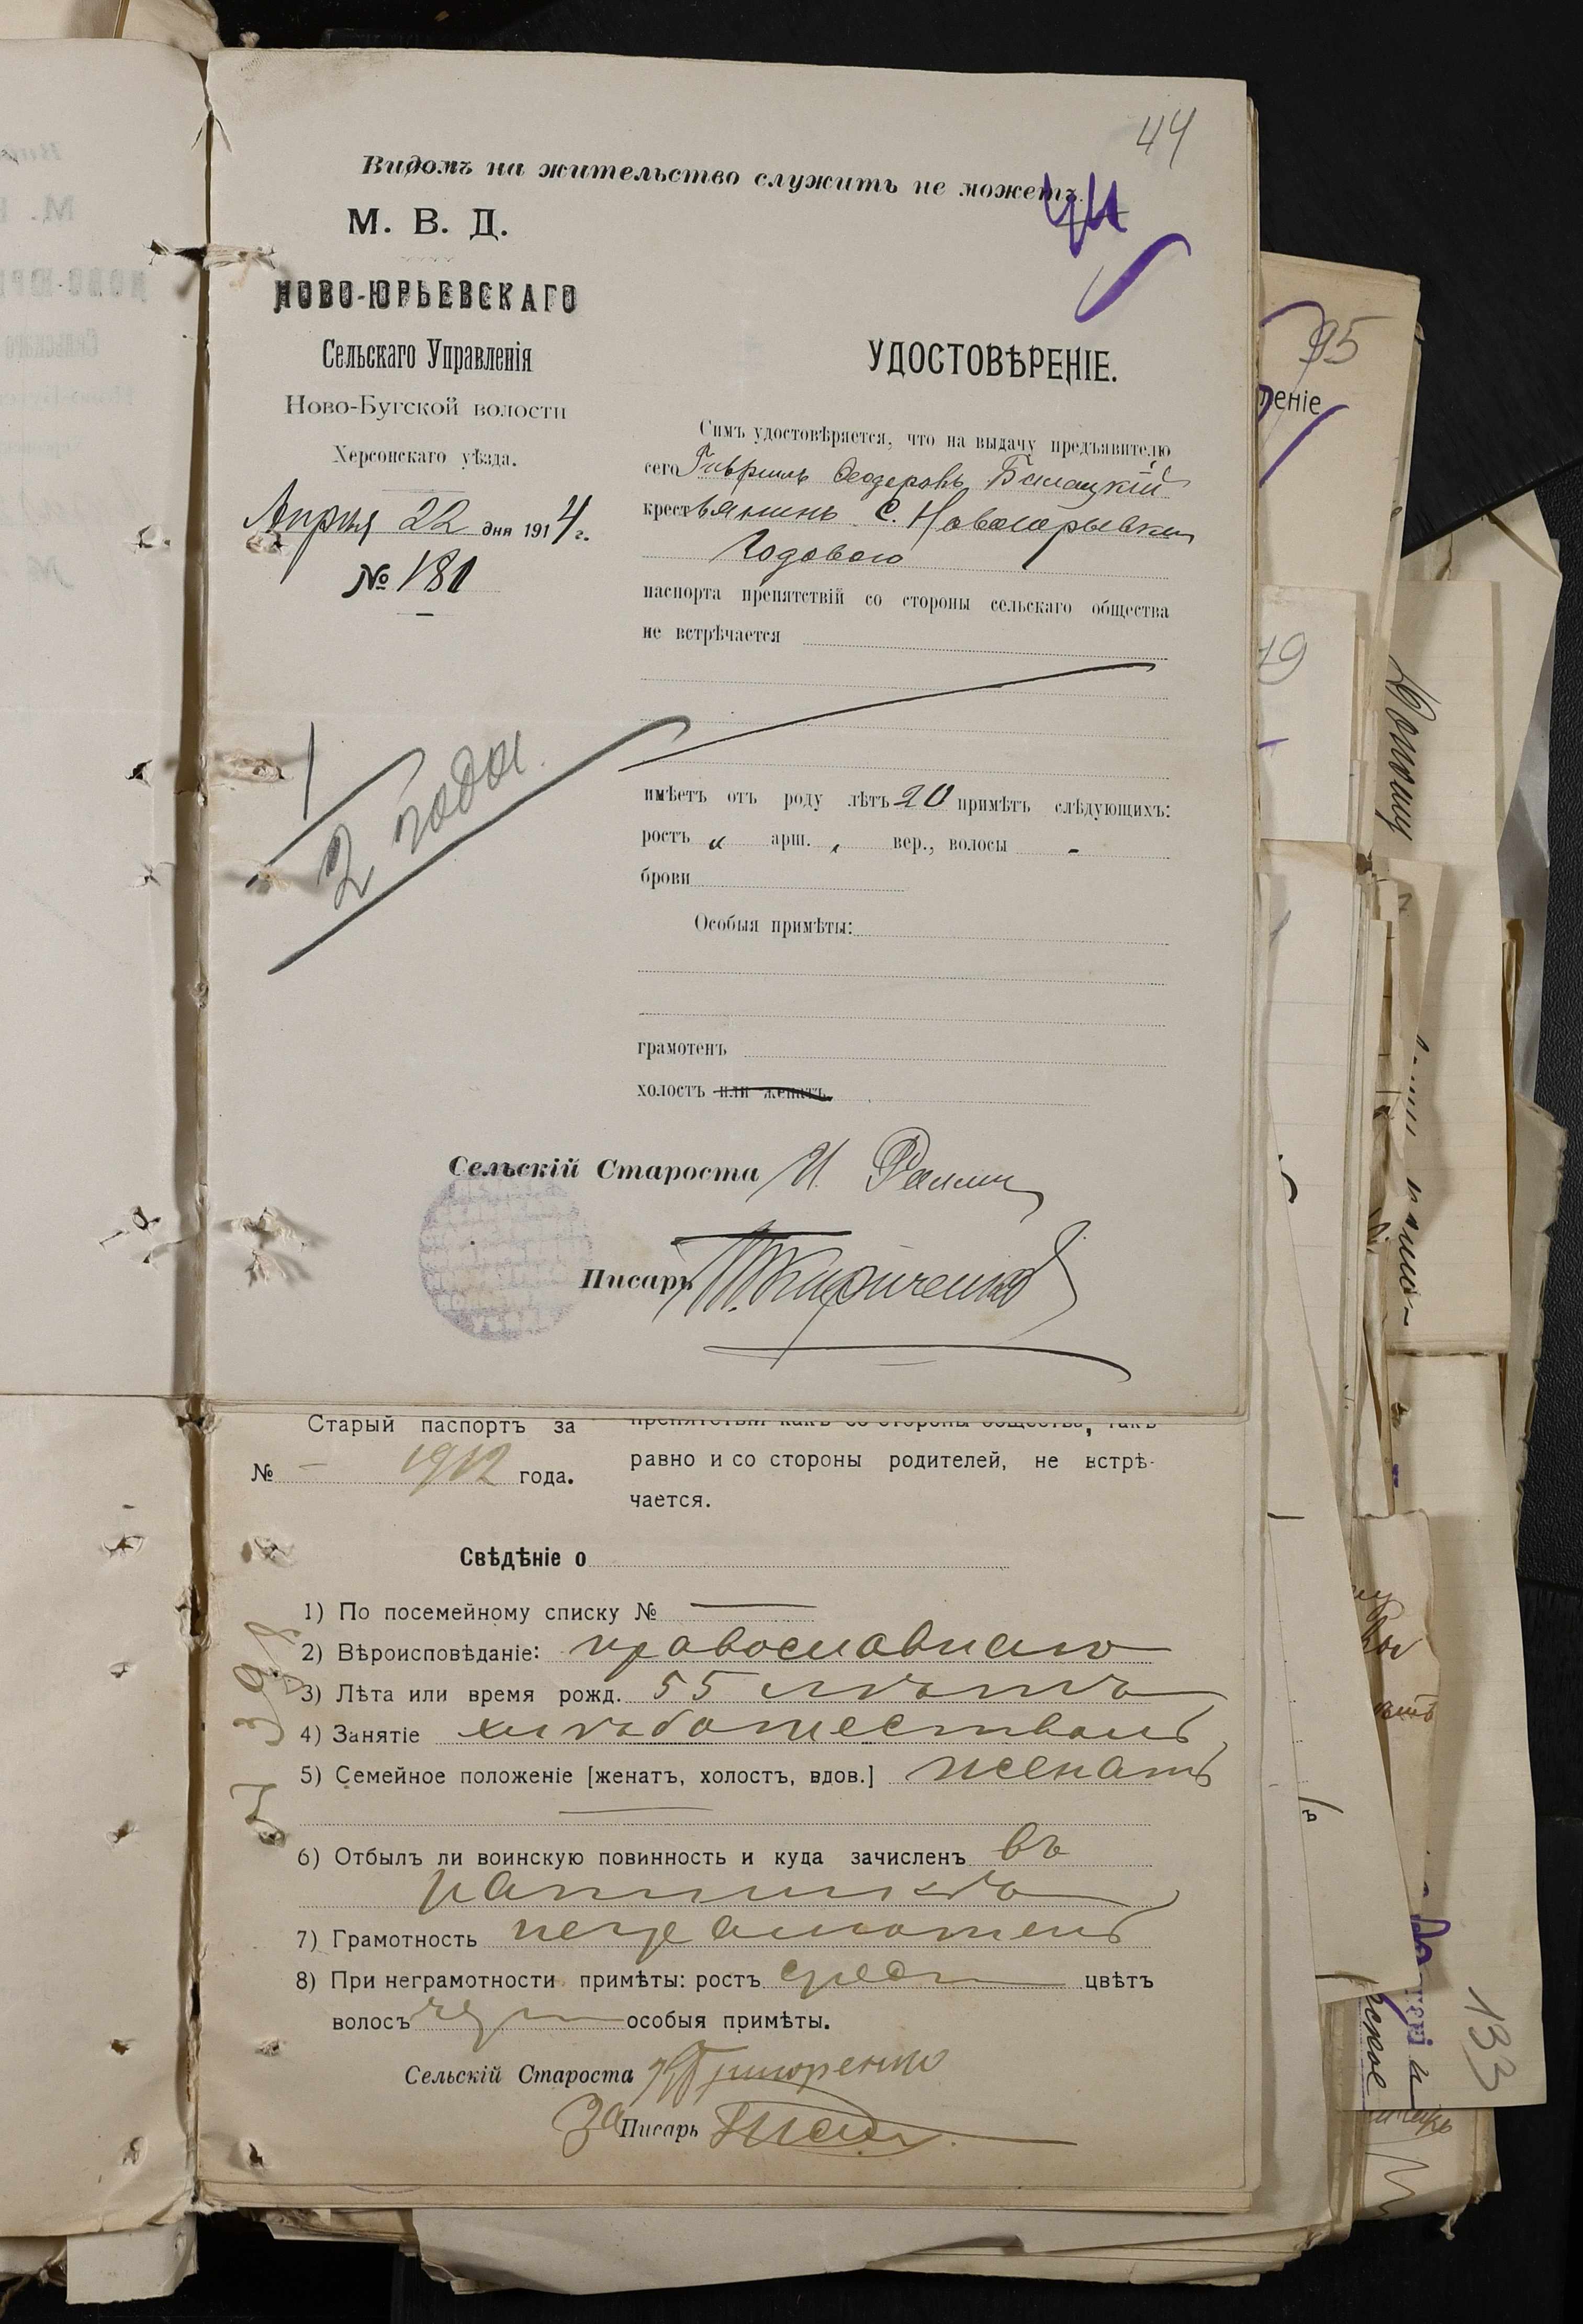 44
Видомъ на жительство служить не можетъ.
44
М. В. Д.
НОВО-ЮРЬЕВСКАГО
Сельскаго Управленія
Ново-Бугской волости
Херсонскаго уѣзда.
Апрѣля 22 дня 1914 г.
№ 181
2 года
УДОСТОВѢРЕНІЕ.
Симъ удостовѣряется, что на выдачу предъявителю
сего Гавріилъ Феодоровъ Балацкій
крестьянинъ С. Новоюрьевки
Годового
паспорта препятствій со стороны сельскаго общества
не встрѣчается
имѣетъ отъ роду лѣтъ 20 примѣтъ слѣдующихъ:
ростъ „ арш. „ вер., волосы -
брови
Особыя примѣты:
грамотенъ
холостъ или женатъ.
Сельскій Староста И.
Писарь Кириченко
Старый паспортъ за
№ - 1912 года.
препятствій какъ со стороны общества, такъ
равно и со стороны родителей, не встрѣ-
чается.
Свѣдѣніе о
1) По посемейному списку №
2) Вѣроисповѣданіе: православнаго
3) Лѣта или время рожд. 55 лѣтъ
4) Занятіе хлѣбопашествомъ
5) Семейное положеніе [женатъ, холостъ, вдов.] женатъ
6) Отбылъ ли воинскую повинность и куда зачисленъ въ
ратникъ
7) Грамотность неграмотенъ
8) При неграмотности примѣты: ростъ средн цвѣтъ
волосъ особыя примѣты.
Сельскій Староста
За Писарь
95
еніе
133